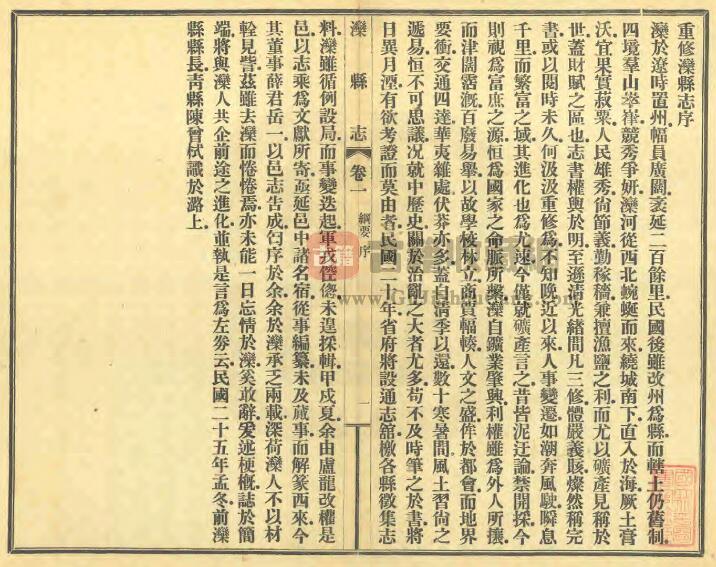 重修灤縣志序
灤於遼時置州幅員廣闊袤延二百餘里民國後雖改州爲縣而轄土仍舊制
四境羣山崒嵂競秀爭妍灤河從西北蜿蜒而來繞城南下直入於海厥土膏
沃宜果實菽粟人民雄秀尙節義勤稼穡兼擅漁鹽之利而尤以礦產見稱於
世蓋財賦之區也志書權輿於明至遜清光緖間凡三修體嚴義賅燦然稱完
書或以閱時未久何汲汲重修爲不知晚近以來人事變遷如潮奔風駛瞬息
千里而繁富之域其進化也爲尤速今僅就礦產言之昔皆泥迂論禁開採今
則視爲富庶之源恒爲國家之命脈所繫灤自鑛業肇興利權雖爲外人所攘
而津關霑漑百廢易舉以故學校林立商賈輻輳人文之盛侔於都會而地界
要衝交通四達華夷雜處伏莽亦多蓋自清季以還數十寒暑間風土習尙之
遞易恒不可思議况就中歷史關於治亂之大者尤多苟不及時筆之於書將
日異月湮有欲考證而莫由者民國二十年省府將設通志舘檄各縣徵集志
灤縣志
卷一
綱要
序
一
料灤雖循例設局而事變迭起軍戎倥偬未遑採輯甲戌夏余由盧龍改權是
邑以志乘爲文獻所寄亟延邑中諸名宿從事編纂未及蕆事而解篆西來今
其董事薛君岳一以邑志告成匄序於余余於灤承乏兩載深荷灤人不以材
輇見訾茲雖去灤而惓惓焉亦未能一日忘情於灤奚敢辭爰述梗槪誌於簡
端將與灤人共企前途之進化並執是言爲左劵云民國二十五年孟冬前灤
縣縣長靑縣陳曾栻識於潞上
古籍